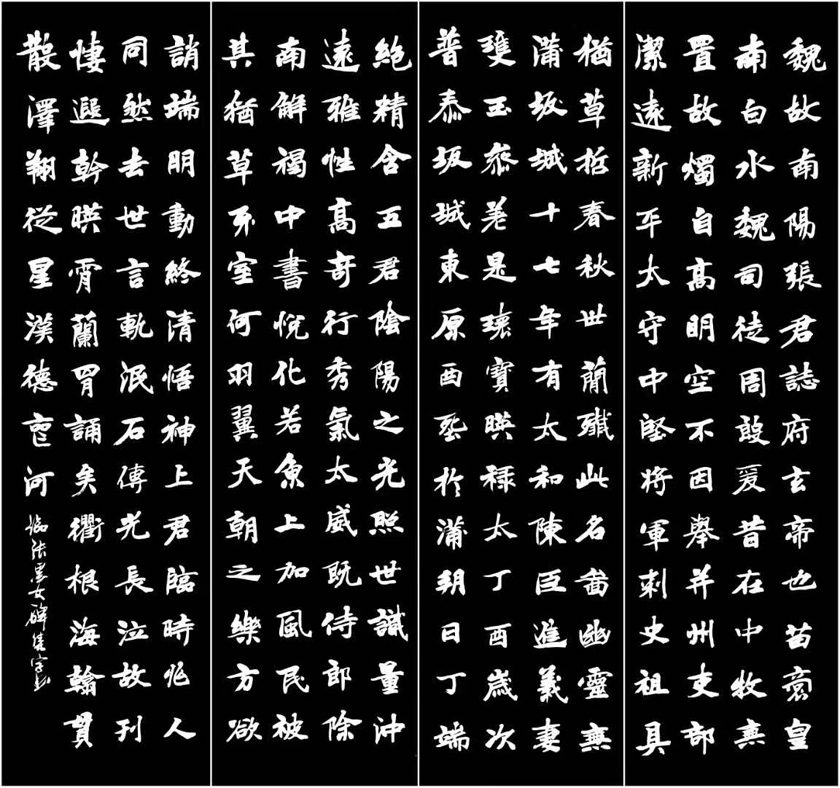 魏故南陽張君誌府玄帝也苗裔皇
南白水魏司徒周爰昔在中牧無
置故燭自高明空不因舉并州吏部
潔遠新平太守中堅將軍刺史祖具
猶草哲春秋世蘭殲此名啚幽靈無
蒲坂城十七年有太和陳臣進義妻
雙玉叅差是瓌寶暎祿太丁酉歲次
普泰坂城東原西塟於蒲朔日丁端
絕精含五君陰陽之光照世識量沖
遠雅性高奇行秀氣太威既侍郎除
南解褐中書悅化若魚上加風民被
其猶草不室何羽翼天朝之樂方欲
誚端明動終清悟神上君臨時兆人
同然去世言軌泯石傳光長泣故刊
悽遐幹暎霄蘭胃誦矣衢根海翰貫
散澤翔從星漢德河
臨張黑女碑集字